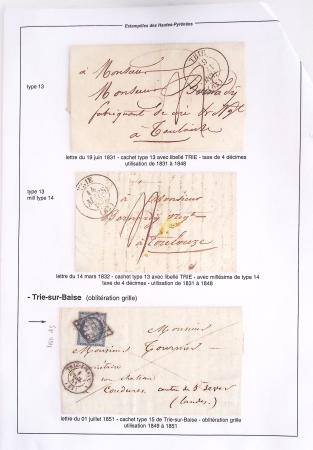 Estampilles des Hautes-Pyrénées
type 13
TRIE
à Monsieur
Monsieur
fabriquant de cire
à Toulouse
lettre du 19 juin 1831 - cachet type 13 avec libellé TRIE - taxe de 4 décimes
utilisation de 1831 à 1848
type 13
mill type 14
TRIE
à Monsieur
Toulouze
lettre du 14 mars 1832 - cachet type 13 avec libellé TRIE - avec millésime de type 14
taxe de 4 décimes - utilisation de 1831 à 1848
- Trie-sur-Baïse (oblitération grille)
Monsieur
Monsieur
en son château
Coudures canton de St Sever
(Landes)
lettre du 01 juillet 1851 - cachet type 15 de Trie-sur-Baïse - oblitération grille
utilisation 1849 à 1851